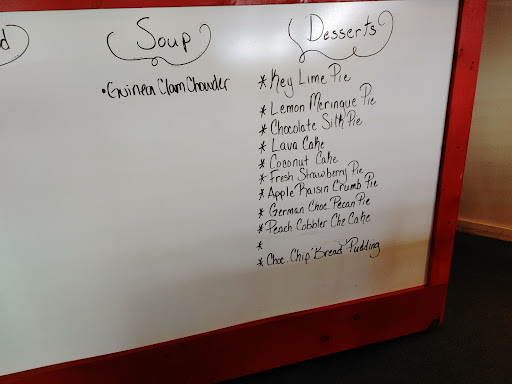 d
Soup
• Guinea Clam Chowder
Desserts
* Key Lime Pie
* Lemon Meringue Pie
* Chocolate Silk Pie
* Lava Cake
* Coconut Cake
* Fresh Strawberry Pie
* Apple Raisin Crumb Pie
* German Choc. Pecan Pie
* Peach Cobbler Chz Cake
*
* Choc. Chip "Bread" Pudding